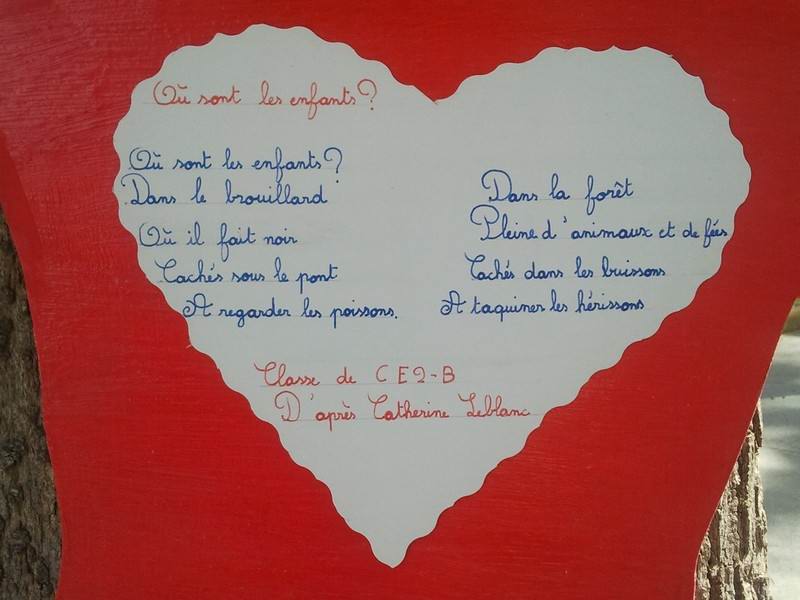 Où sont les enfants ?
Où sont les enfants ?
Dans le brouillard
Où il fait noir
Cachés sous le pont
A regarder les poissons.
Dans la forêt
Pleine d'animaux et de fées
Cachés dans les buissons
A taquiner les hérissons
Classe de CE2-B
D'après Catherine Leblanc